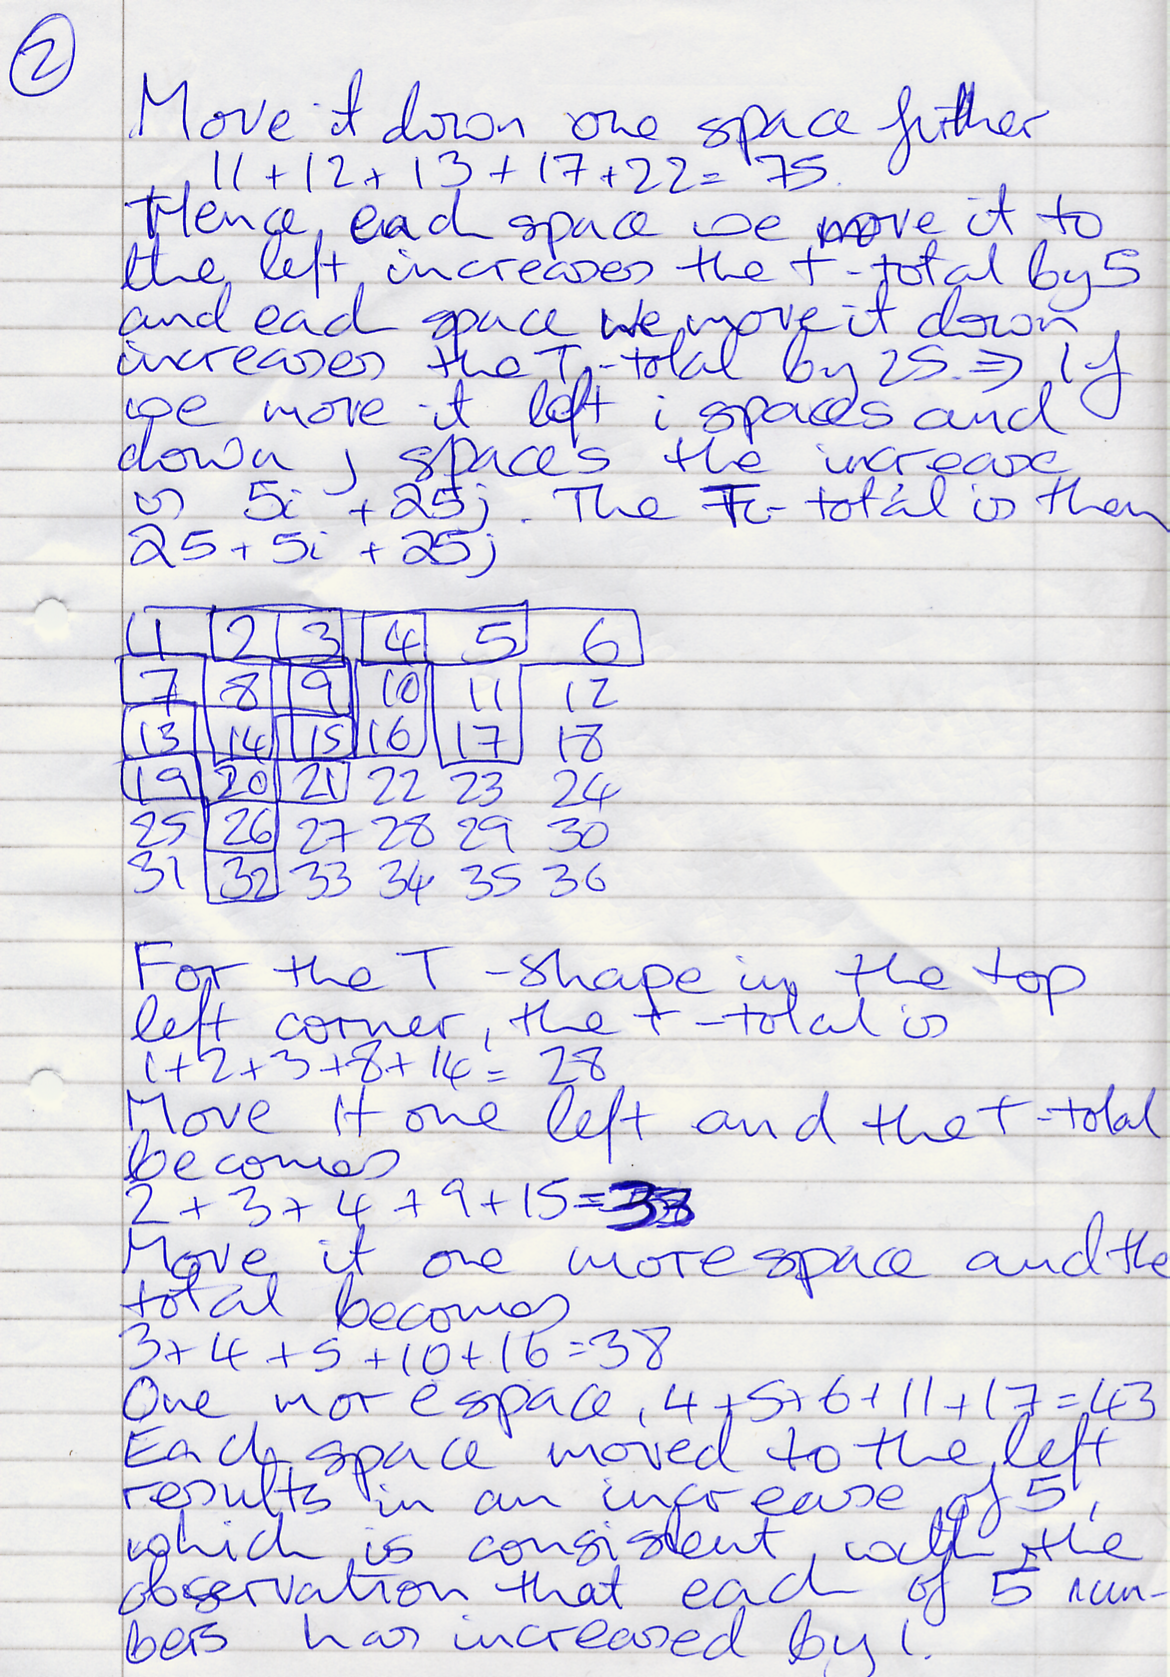 2
Move it down one space further
11+12+13+17+22=75.
Hence, each space we move it to
the left, increases the T-total by 5
and each space we move it down,
increases the T-total by 25. ⇒ If
we move it left i spaces and
down j spaces the increase
is 5i +25j. The T-total is then
25+5i +25j
1 2 3 4 5 6
7 8 9 10 11 12
13 14 15 16 17 18
19 20 21 22 23 24
25 26 27 28 29 30
31 32 33 34 35 36
For the T-shape in the top
left corner, the T-total is
1+2+3+8+14= 28
Move it one left and the T-total
becomes
2+3+4+9+15=33
Move it one more space and the
total becomes
3+4+5+10+16=38
One more space, 4+5+6+11+17=43
Each space moved to the left
results in an increase of 5,
which is consistent with the
observation that each of 5 num-
bers has increased by 1.